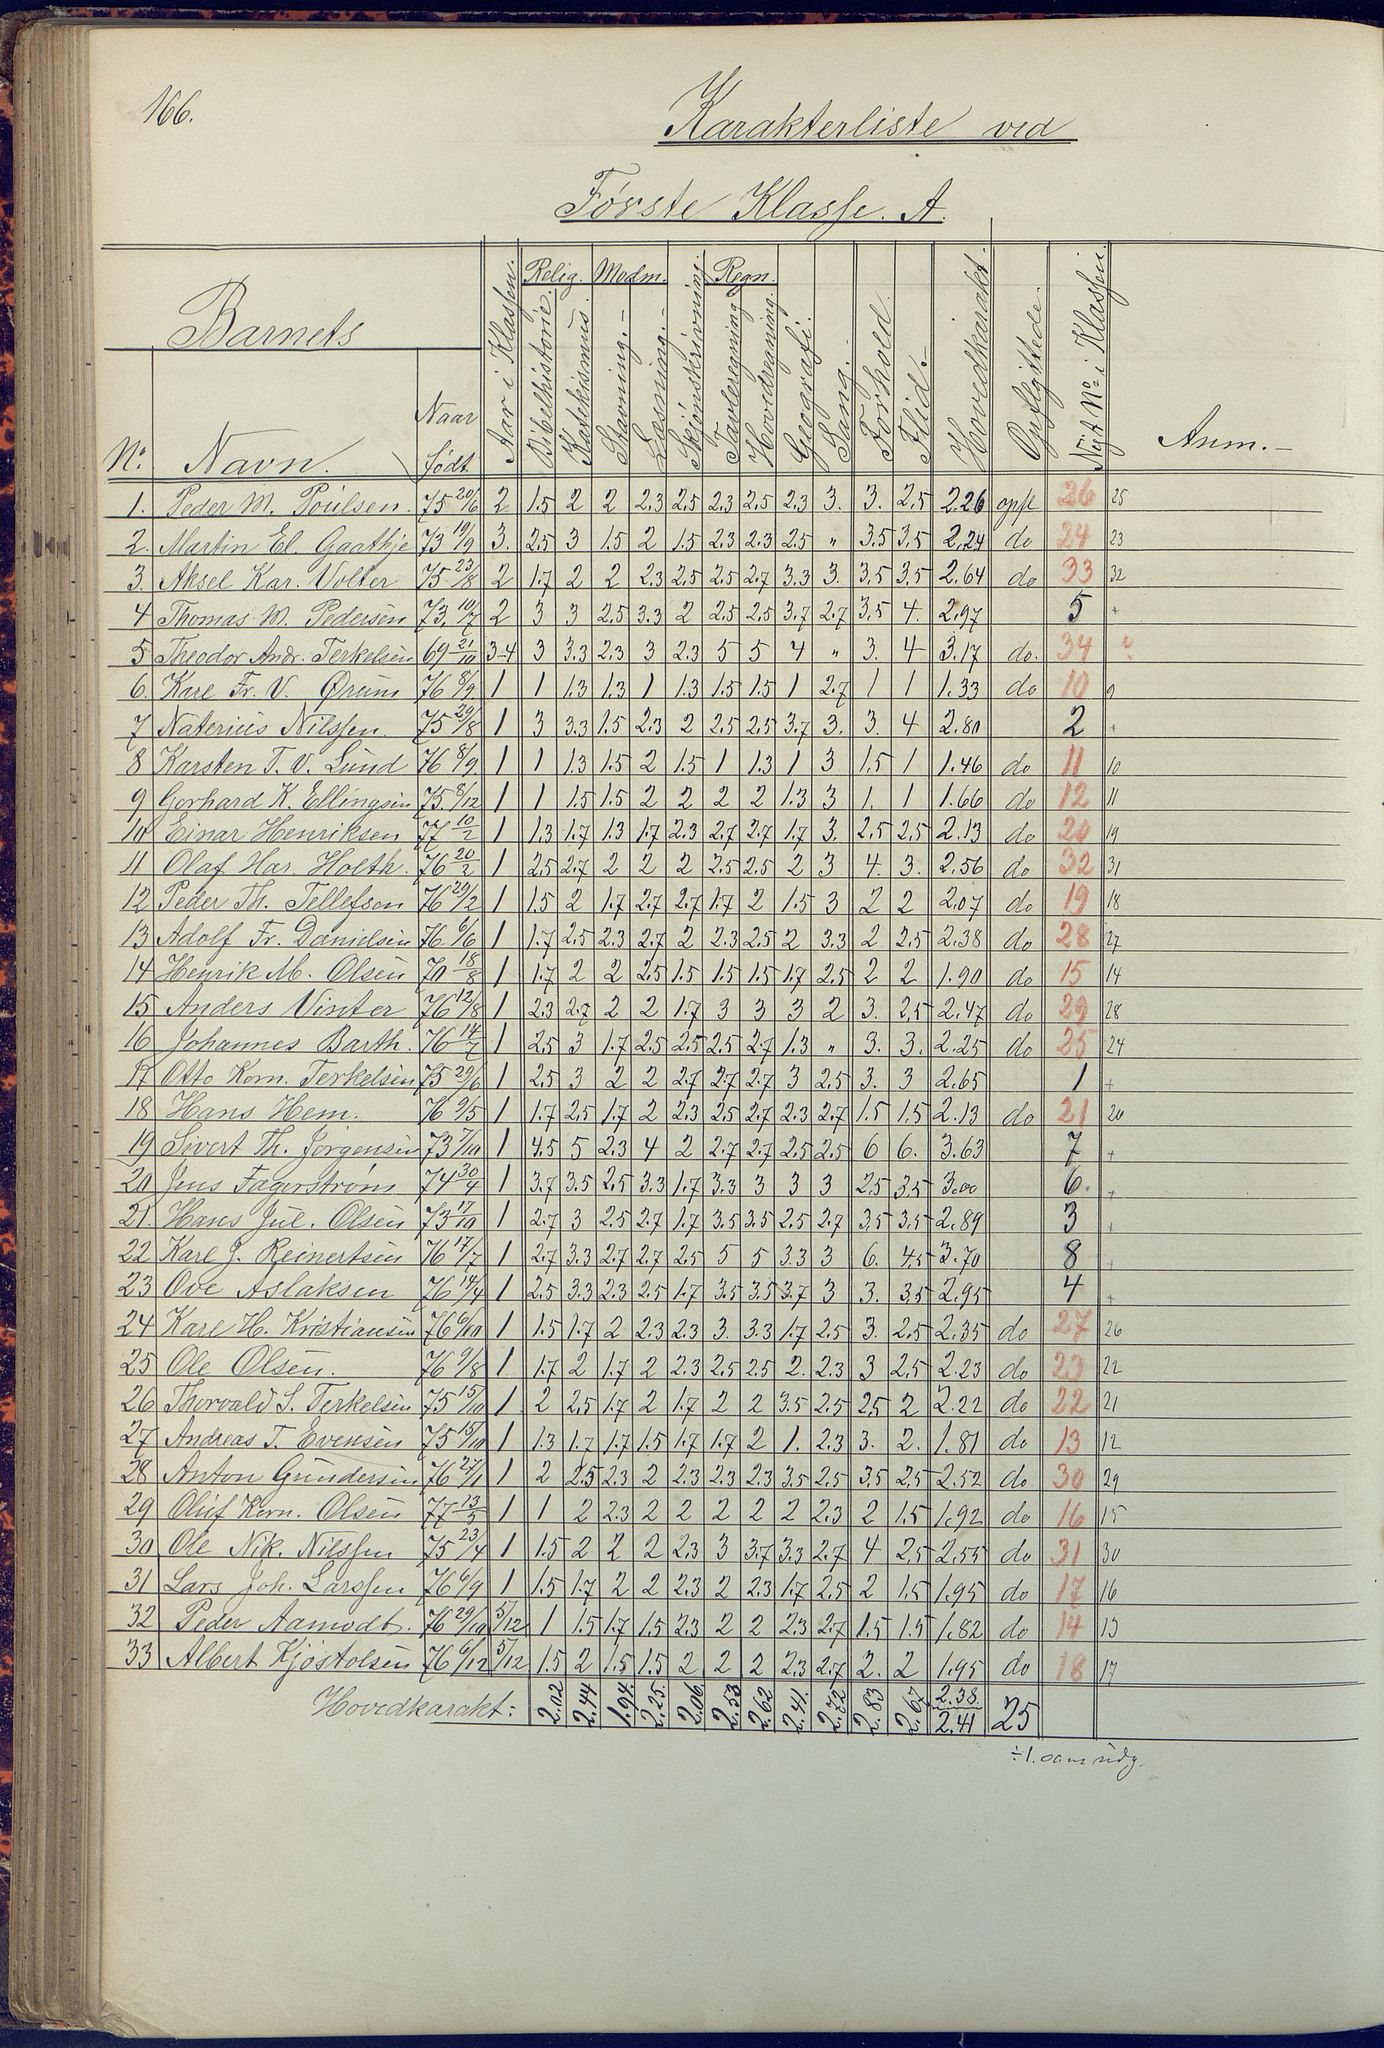 166.
Karakterliste ved
Første Klasse. A.
Barnets
Relig. Modm. Regn.
No. Navn. Naar født Aar i Klassen. Bibelhistorie. Katekismus. Stavning. Læsning. Skjønskrivning. Tavleregning Hovedregning. Geografi. Sang. Forhold. Flid. Hovedkarakt. Opflyttede. Nyt No i Klassen. Anm.
1. Peder M. Poulsen. 75 20/6 2 1.5 2 2 2.3 2.5 2.3 2.5 2.3 3. 3. 2.5 2.26 opfl 26 25
2. Martin El. Gaathje 73 19/9 3. 2.5 3 1.5 2 1.5 2.3 2.3 2.5 " 3.5 3.5 2.24 do 24 23
3. Aksel Kar. Volter 75 23/8 2 1.7 2 2 2.3 2.5 2.5 2.7 3.3 3. 3.5 3.5 2.64 do 33 32
4 Thomas M. Pedersen 73. 10/7 2 3 3 2.5 3.3 2 2.5 2.5 3.7 2.7 3.5 4. 2.97 5 +
5 Theodor Andr. Terkelsen 69 21/10 3-4 3 3.3 2.3 3 2.3 5 5 4 " 3. 4 3.17 do. 34
6. Karl Fr. V. Ørum 76 8/9. 1 1 1.3 1.3 1 1.3 1.5 1.5 1 2.7 1 1 1.33 do 10 9
7 Naterius Nilssen. 75 29/8 1 3 3.3 1.5 2.3 2 2.5 2.5 3.7 3. 3. 4 2.80 2 +
8 Karsten T. V. Lund 76 8/9. 1 1 1.3 1.5 2 1.5 1 1.3 1 3 1.5 1 1.46 do 11 10
9 Gerhard K. Ellingsen 75 8/12 1 1 1.5 1.5 2 2 2 2 1.3 3 1. 1 1.66 do 12 11
10 Einar Henriksen 77 10/2 1 1.3 1.7 1.3 1.7 2.3 2.7 2.7 1.7 3. 2.5 2.5 2.13 do 20 19
11 Olaf Har. Holth. 76 20/2 1 2.5 2.7 2 2 2 2.5 2.5 2 3 4. 3. 2.56 do 32 31
12 Peder Th. Tellefsen 76 29/12 1 1.5 2 1.7 2.7 2.7 1.7 2 1.5 3 2 2 2.07 do 19 18
13 Adolf Fr. Danielsen 76. 6/6 1 1.7 2.5 2.3 2.7 2 2.3 2.5 2 3.3 2 2.5 2.38 do 28 27
14 Henrik M. Olsen 70 18/8 1 1.7 2 2 2.5 1.5 1.5 1.5 1.7 2.5 2 2 1.90 do 15 14
15 Anders Vinter 76 12/8 1 2.3 2.7 2 2 1.7 3 3 3 2 3. 2.5 2.47 do 29 28
16 Johannes Barth. 76 14/7 1 2.5 3 1.7 2.5 2.5 2.5 2.7 1.3 " 3. 3. 2.25 do 25 24
17 Otto Korn. Terkelsen 75 29/6 1 2.5 3 2 2 2.7 2.7 2.7 3 2.5 3. 3 2.65 1 +
18 Hans Hem. 76 9/5 1 1.7 2.5 1.7 2 2.3 2.5 2.7 2.3 2.7 1.5 1.5 2.13 do 21 20
19 Sivert Th. Jørgensen 73 7/10 1 4.5 5 2.3 4 2 2.7 2.7 2.5 2.5 6 6. 3.63 7 +
20 Jens Fagerstrøm 74 30/4 1 3.7 3.5 2.5 3.3 1.7 3.3 3 3 3 2.5 3.5 3.00 6. +
21. Hans Jul. Olsen 73 17/10 1 2.7 3 2.5 2.7 1.7 3.5 3.5 2.5 2.7 3.5 3.5 2.89 3 +
22 Karl J. Reinertsen 76 17/7 1 2.7 3.3 2.7 2.7 2.5 5 5 3.3 3 6. 4.5 3.70 8 +
23 Ove Aslaksen 76 14/4 1 2.5 3.3 2.3 2.5 1.7 3.5 3.5 3.7 3 3. 3.5 2.95 4 +
24 Karl H. Kristiansen 76 6/10 1 1.5 1.7 2 2.3 2.3 3. 3.3 1.7 2.5 3. 2.5 2.35 do 27 26
25 Ole Olsen. 76 9/8 1. 1.7 2 1.7 2 2.3 2.5 2.5 2. 2.3 3 2.5 2.23 do 23 22
26 Thorvald S. Terkelsen 75 15/10 1 2 2.5 1.7 2 1.7 2 2 3.5 2.5 2.5 2 2.22 do 22 21
27 Andreas T. Evensen 75 15/10 1 1.3 1.7 1.7 1.5 1.7 1.7 2 1. 2.3 3. 2. 1.81 do 13 12
28 Anton Gundersen 76 27/1 1 2 2.5 2.3 2 2.3 2.3 2.3 3.5 2.5 3.5 2.5 2.52 do 30 29
29 Oluf Korn. Olsen 77 13/5 1 1 2 2.3 2 2 2 2 2 2.3 2 1.5 1.92 do 16 15
30 Ole Nik. Nilssen 75 23/4 1 1.5 2 2 2 2.3 3 3.7 3.3 2.7 4 2.5 2.55 do 31 30
31 Lars Joh. Larssen 76 6/9 1 1.5 1.7 2 2 2.3 2 2.3 1.7 2.5 2 1.5 1.95 do 17 16
32 Peder Aamodt. 76 29/10 5/12 1 1.5 1.7 1.5 2.3 2 2 2.3 2.7 1.5 1.5 1.82 do 14 13
33 Albert Kjøstolsen 76 6/12 5/12 1.5 2 1.5 1.5 2 2 2 2.3 2.7 2. 2 1.95 do 18 17
Hovedkarakt: 2.02 2.44 1.94. 2.25. 2.06. 2.53 2.62 2.41. 2.72 2.83 2.67 2.38. 2.41 25
÷1. som udg.